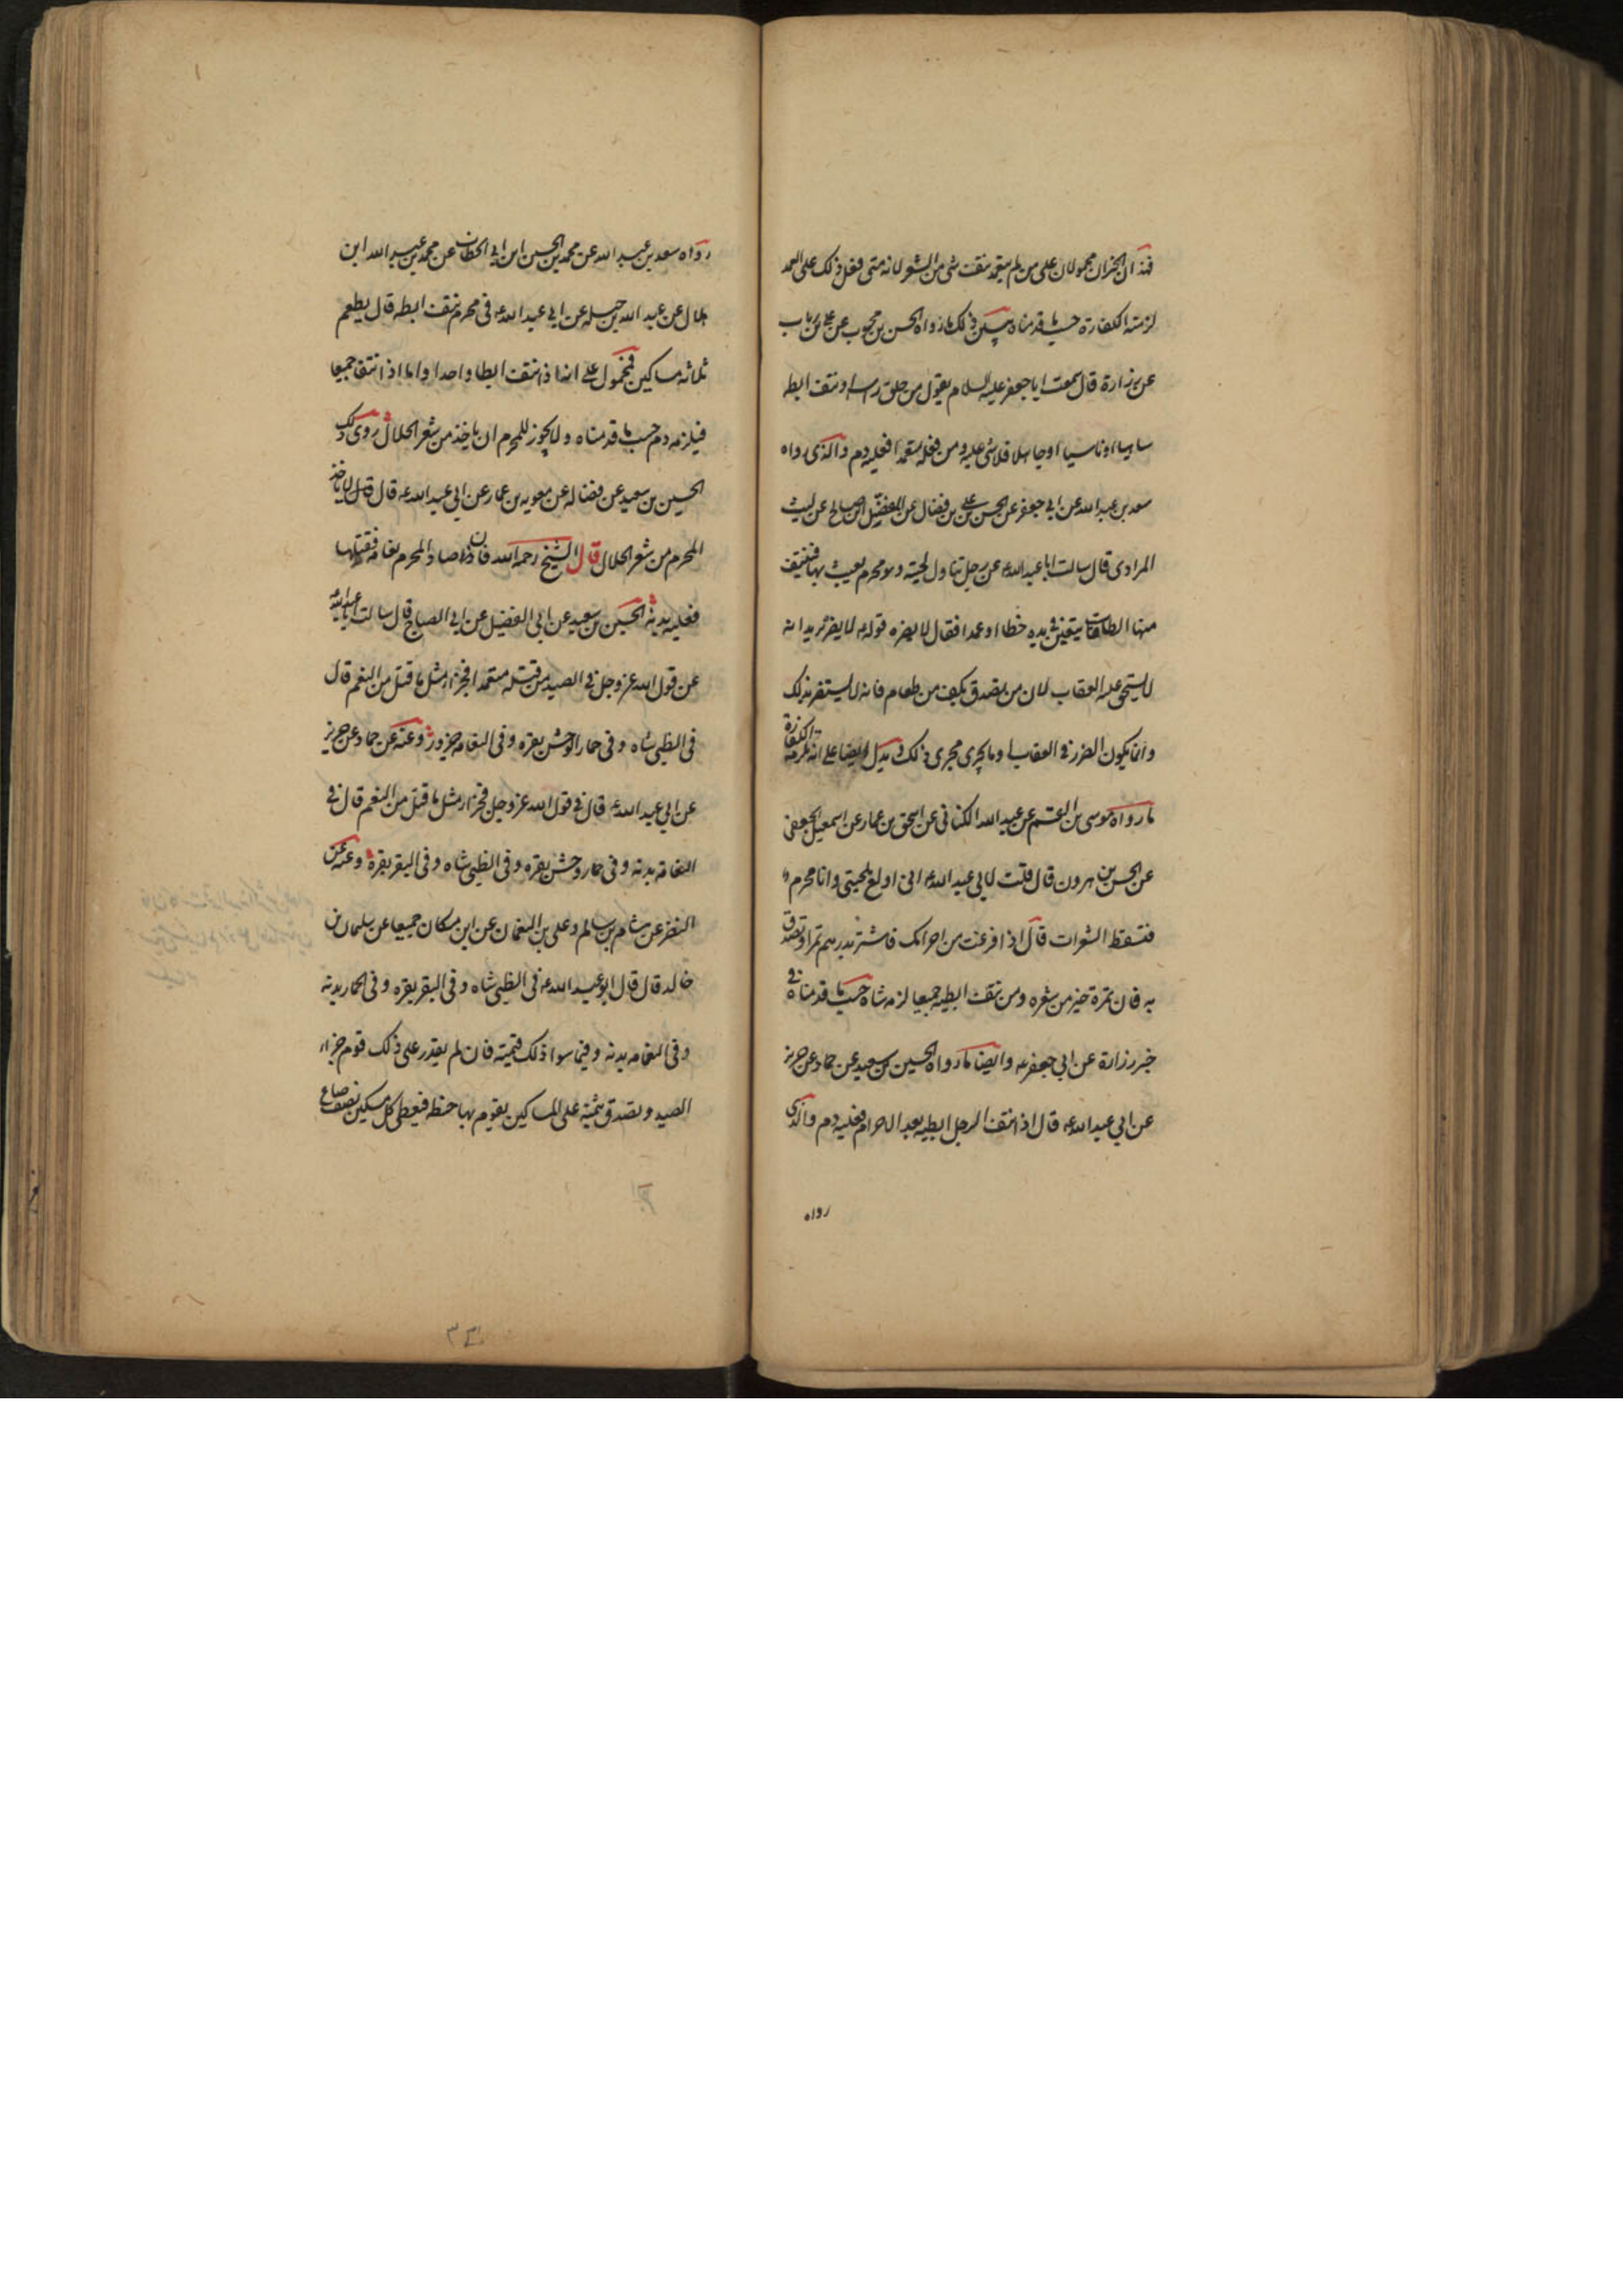 فهذان الخبران محمولان على من لم يتعمد نتف شي من الشعر لانه متى فعل ذلك على العمد
لزمته الكفارة حسب ما قدمناه يبين ذلك ما رواه الحسن بن محبوب عن على بن رياب
عن زرارة قال سمعت ابا جعفر عليه السلام يقول من حلق راسه او نتف ابطه
ساهيا او ناسيا او جاهلا فلا شى عليه ومن فعله متعمدا فعليه دم والذى رواه
سعد بن عبد الله عن ابى جعفر عن الحسن بن على بن فضال عن المفضل بن صالح عن ليث
المرادى قال سالت ابا عبد الله ع عن رجل تناول لحيته وهو محرم يعبث بها فينتف
منها الطاقات يبقين فى يده خطا او عمدا فقال لا يضره قوله ع لا يضره يريد انه
لا يستحق عليه العقاب لان من تصدق بكف من طعام فانه لا يستضر بذلك
وانما يكون الضرر فى العقاب او ما يجرى مجرى ذلك ويدل ايضا على انه تلزمه الكفارة
ما رواه موسى بن القسم عن عبد الله الكنانى عن اسحق بن عمار عن اسمعيل الجعفى
عن الحسن بن هرون قال قلت لابى عبد الله ع انى اولع بلحيتى وانا محرم
فتسقط الشعرات قال اذا فرغت من احرامك فاشتر بدرهم تمرا وتصدق
به فان تمرة خير من شعره ومن نتف ابطيه جميعا لزمه شاة حسب ما قدمناه فى
خبر زرارة عن ابى جعفر ع وايضا ما رواه الحسين بن سعيد عن حماد عن حريز
عن ابى عبد الله ع قال اذا نتف الرجل ابطيه بعد الاحرام فعليه دم والذى
رواه
رواه سعد بن عبد الله عن محمد بن الحسين ابن ابى الخطاب عن محمد بن عبد الله ابن
هلال عن عبد الله بن جبله عن ابى عبد الله ع فى محرم نتف ابطه قال يطعم
ثلاثه مساكين فمحمول على انه اذا نتف ابطا واحدا واما اذا نتف جميعا
فيلزمه دم حسب ما قدمناه ولا يجوز للمحرم ان ياخذ من شعر الحلال روى ذلك
الحسين بن سعيد عن فضاله عن معويه بن عمار عن ابى عبد الله ع قال قال لا ياخذ
المحرم من شعر الحلال قال الشيخ رحمه الله فان صاد المحرم نعامه فقتلها
فعليه بدنه الحسين بن سعيد عن ابى الفضيل عن ابى الصباح قال سالت ابا عبد الله ع
عن قول الله عز وجل فى الصيد من قتله متعمدا فجزاء مثل ما قتل من النعم قال
فى الظبى شاه وفى حمار الوحش بقره وفى النعامه جزور وعنه عن حماد عن حريز
عن ابى عبد الله ع قال فى قول الله عز وجل فجزاء مثل ما قتل من النعم قال فى
النعامه بدنه وفى حمار وحش بقره وفى الظبى شاه وفى البقر بقرة وعنه عن
النضر عن هشام بن سالم وعلى بن النعمان عن ابن مسكان جميعا عن سليمان بن
خالد قال قال ابو عبد الله ع فى الظبى شاه وفى البقر بقره وفى الحمار بدنه
وفى النعامه بدنه وفيما سوا ذلك قيمته فان لم يقدر على ذلك قوم جزاء
الصيد وتصدق بثمنه على المساكين يقوم بها حنطه فيعطى كل مسكين نصف صاع